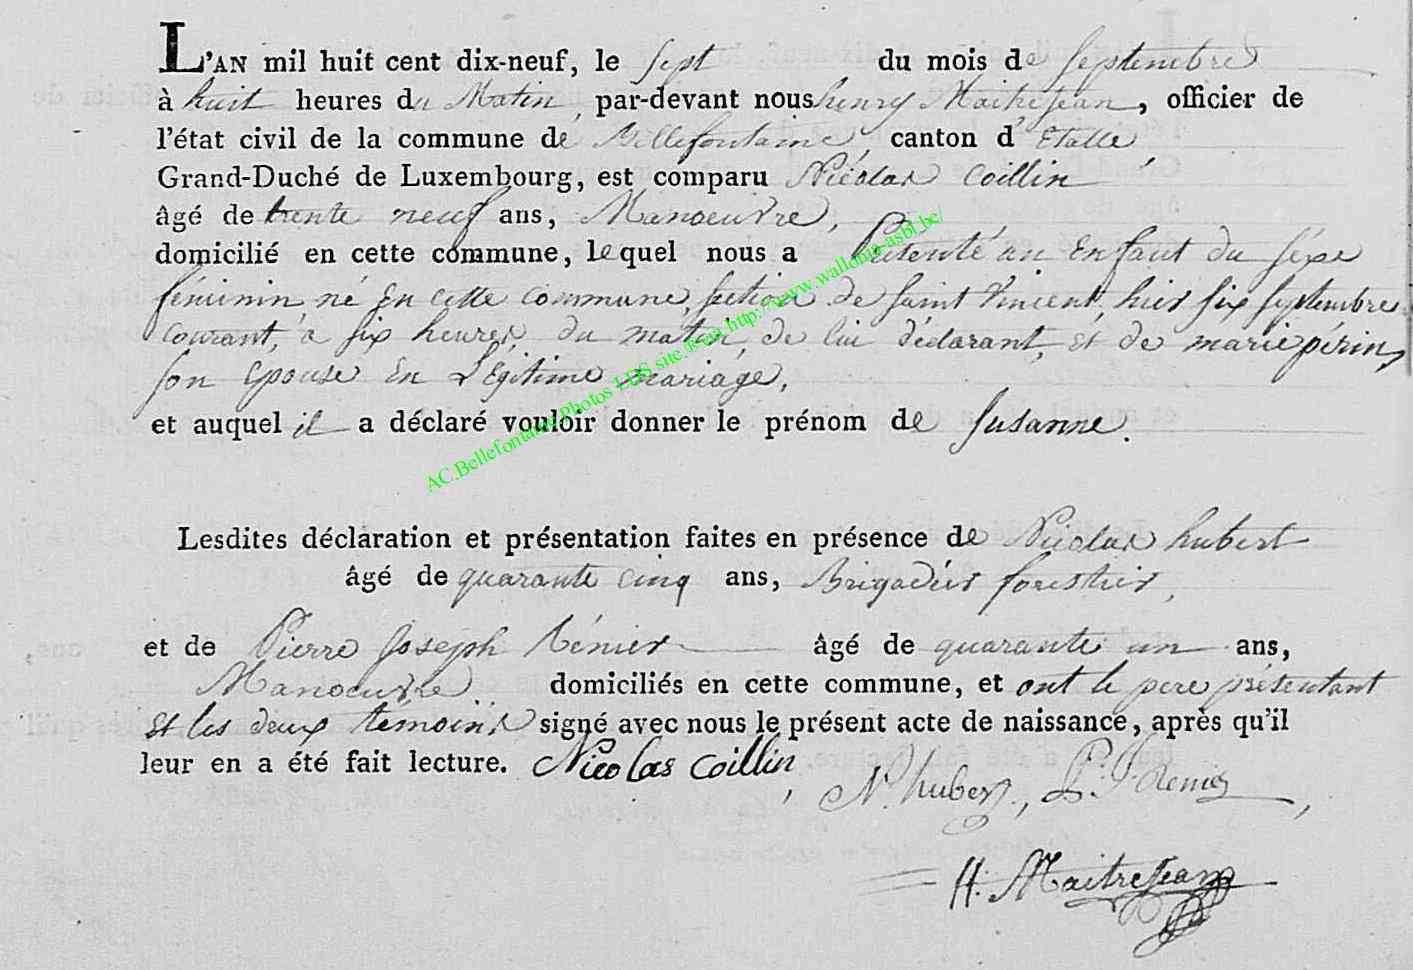 L'AN mil huit cent dix-neuf, le sept du mois de septembre
à huit heures du Matin, par-devant nous henry Maitrejean, officier de
l'état civil de la commune de Bellefontaine, canton d'Etalle,
Grand-Duché de Luxembourg, est comparu Nicolas Coillin
âgé de trente neuf ans, Manoeuvre,
domicilié en cette commune, lequel nous a Présenté un Enfant du séxe
féminin né en cette commune, section de Saint Vincent, hier six septembre
courant, à six heures du matin, de lui déclarant, et de marie périn,
son Epouse En Légitime mariage,
et auquel il a déclaré vouloir donner le prénom de Susanne.
AC.Bellefontaine Photos LDS site.Roots http://www.wallonia-asbl.be/
Lesdites déclaration et présentation faites en présence de Nicolas hubert
âgé de quarante cinq ans, Brigadier forestier,
et de Pierre Joseph Rénier âgé de quarante un ans,
Manoeuvre domiciliés en cette commune, et ont le pere présentant
Et les deux témoins signé avec nous le présent acte de naissance, après qu'il
leur en a été fait lecture. Nicolas Coillin,
N. hubert, P. J. Renier,
H. Maitrejean